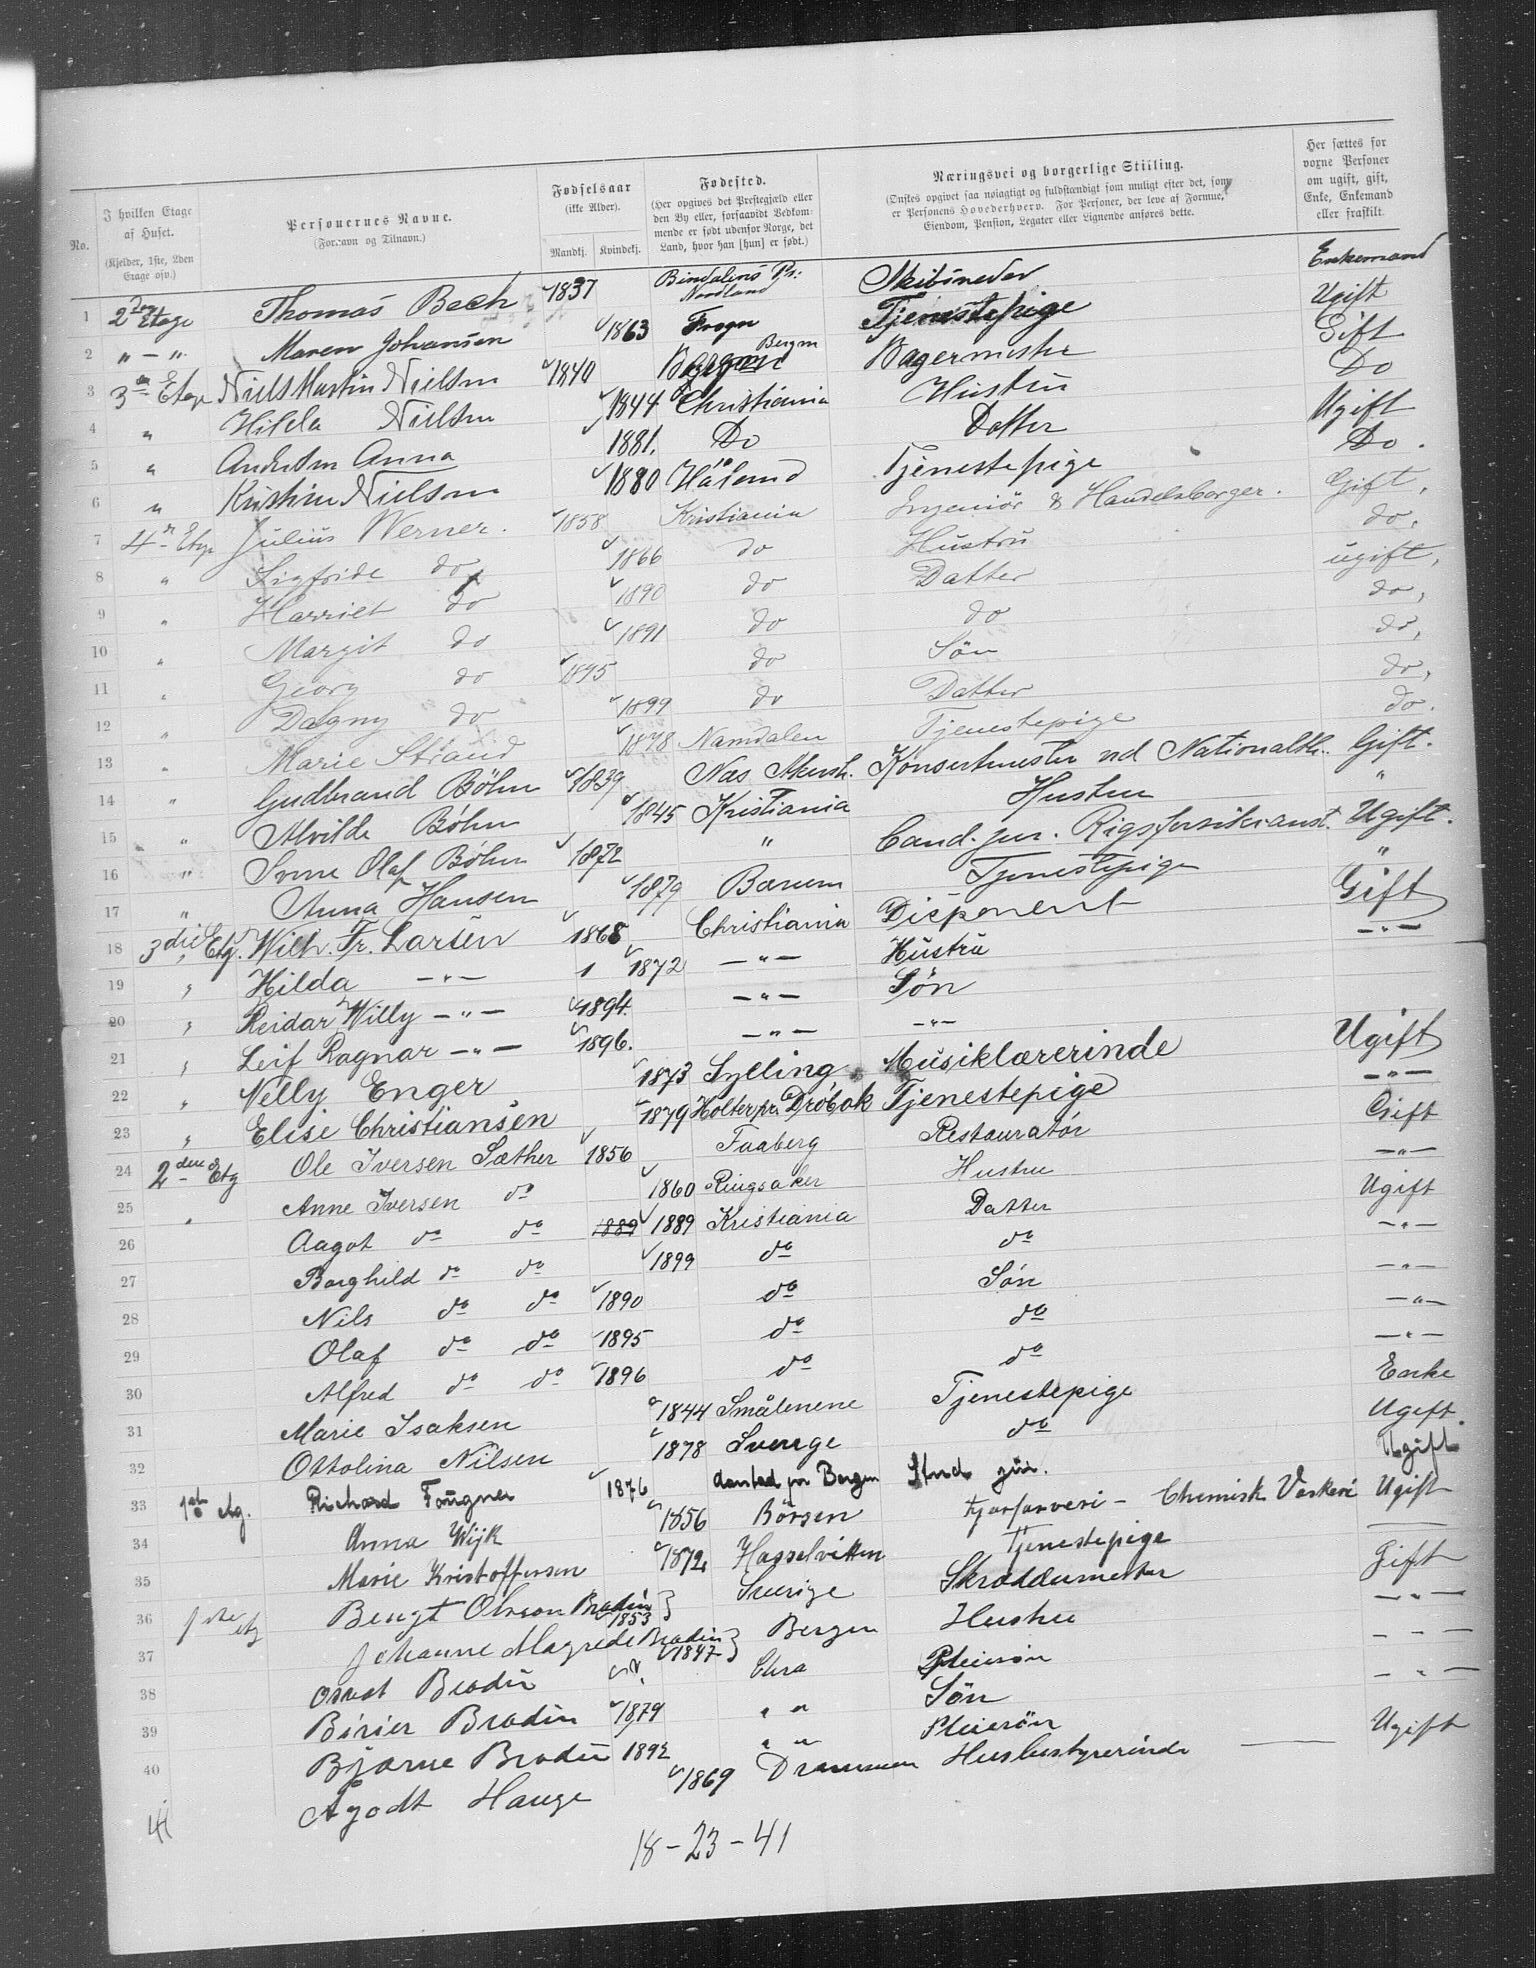 No.
I hvilken Etage af Huset. (Kjelder, 1ste, 2den Etage osv.)
Personernes Navne. (Fornavn og Tilnavn.)
Fødselsaar (ikke Alder). Mandkj. Kvindekj.
Fødested. (Her opgives det Prestegjæld eller den By eller, forsaavidt Vedkommende er født udenfor Norge, det Land, hvor han [hun] er født.)
Næringsvei og borgerlige Stilling. (Ønskes opgivet saa nøiagtigt og fuldstændigt som muligt efter det, som er Personens Hovederhverv. For Personer, der leve af Formue, Eiendom, Pension, Legater eller Lignende anføres dette.
Her sættes for voxne Personer om ugift, gift, Enke, Enkemand eller fraskilt.
1 2den Etage Thomas Bech 1837 Bindalens Pr: Nordland Skibsreder Enkemand
2 " — " Maren Johansen 1863 Frogn Tjenestepige Ugift
3 3de Etage Niels Martin Nielsen 1840 Bergen Bagermester Gift
4 " Hilda Nielsen 1844 Christiania Hustru Do
5 " Andersen Anna 1881. Do Datter Ugift
6 " Kristine Nielsen 1880 Håland Tjenestepige Do.
7 4de Etge Julius Werner. 1858 Kristiania Ingeniør & Handelsborger. Gift,
8 " Sigfride do 1866 do Hustru do,
9 " Harriet do 1890 do Datter ugift,
10 " Margit do 1891 do do do,
11 " Georg do 1895 do Søn do,
12 " Dagny do 1899 do Datter do,
13 " Marie Strand 1878 Namdalen Tjenestepige do.
14 " Gudbrand Bøhn 1839 Nas Akersh. Konsertmester ved Nationalth. Gift.
15 " Alvilde Bøhn 1845 Kristiania Hustru "
16 " Olaf Bøhn 1872 " Cand. jur. Ugift.
17 " Anna Hansen 1879 Bærum Tjenestepige "
18 3die Etg. Wilh. Fr. Larsen 1868 Christiania Disponent Gift
19 " Hilda — " — 1872 — " — Hustru — " —
20 " Reidar Willy — " — 1894. — " — Søn
21 " Leif Ragnar — " — 1896. — " — — " —
22 " Nelly Enger 1873 Sylling Musiklærerinde Ugift
23 " Elise Christiansen 1879 Holter pr. Drøbak Tjenestepige — " —
24 2den Etg Ole Iversen Sæther 1856 Faaberg Restauratør Gift
25 " Anne Iversen do 1860 Ringsaker Hustru — " —
26 Aagot do do 1889 1889 Kristiania Datter Ugift
27 Borghild do do 1899 do do — " —
28 Nils do do 1890 do Søn — " —
29 Olaf do do 1895 do do — " —
30 Alfred do do 1896 do do — " —
31 Marie Isaksen 1844 Smålenene Tjenestepige Enke
32 Ottolina Nilsen 1878 Sverige do Ugift
33 1ste Etg. Richard Fougner 1876 pr Bergen Stud jur. Ugift
34 Anna Wijk 1856 Børsen Chemisk Vaskeri Ugift
35 Marie Kristoffersen 1872 Hasselvikken Tjenestepige
36 1ste Etg Bengt Olsson Brodin 1853 Sverige Skræddermester Gift
37 Johanne Magrede Brodin 1847 Bergen Hustru — " —
38 Brodin Chra Pleiesøn
39 Birier Brodin 1879 " " Søn — " —
40 Bjarne Brodin 1892 " " Pleiesøn
41 Agodt Hauge 1869 Drammen Husbestyrerinde Ugift
18 – 23 – 41